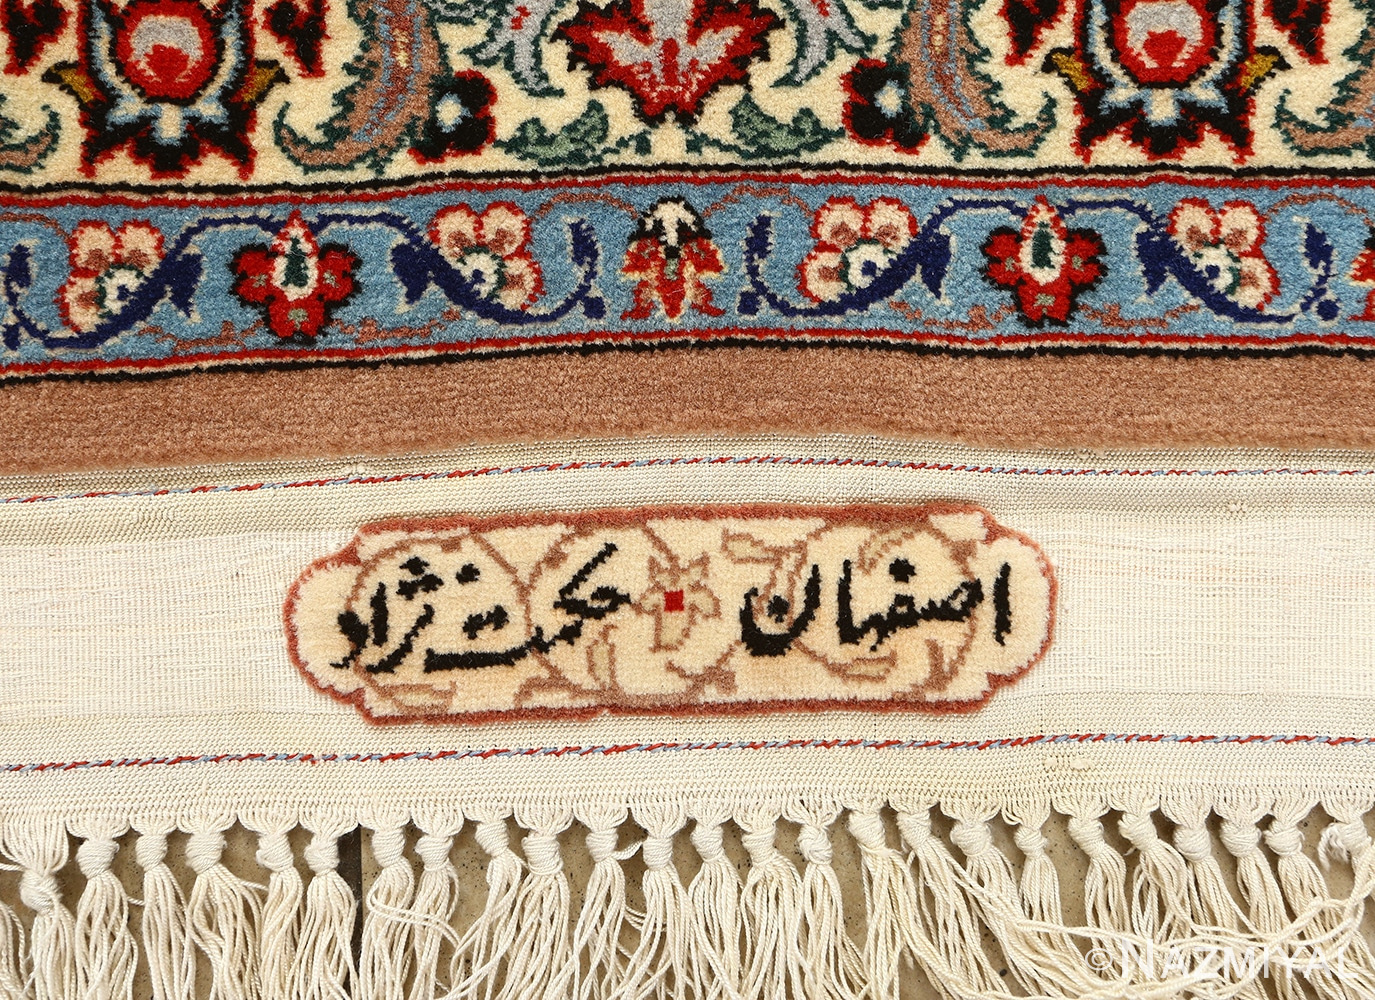 اصفهان حکمت نژاد
© NAZMIYAL